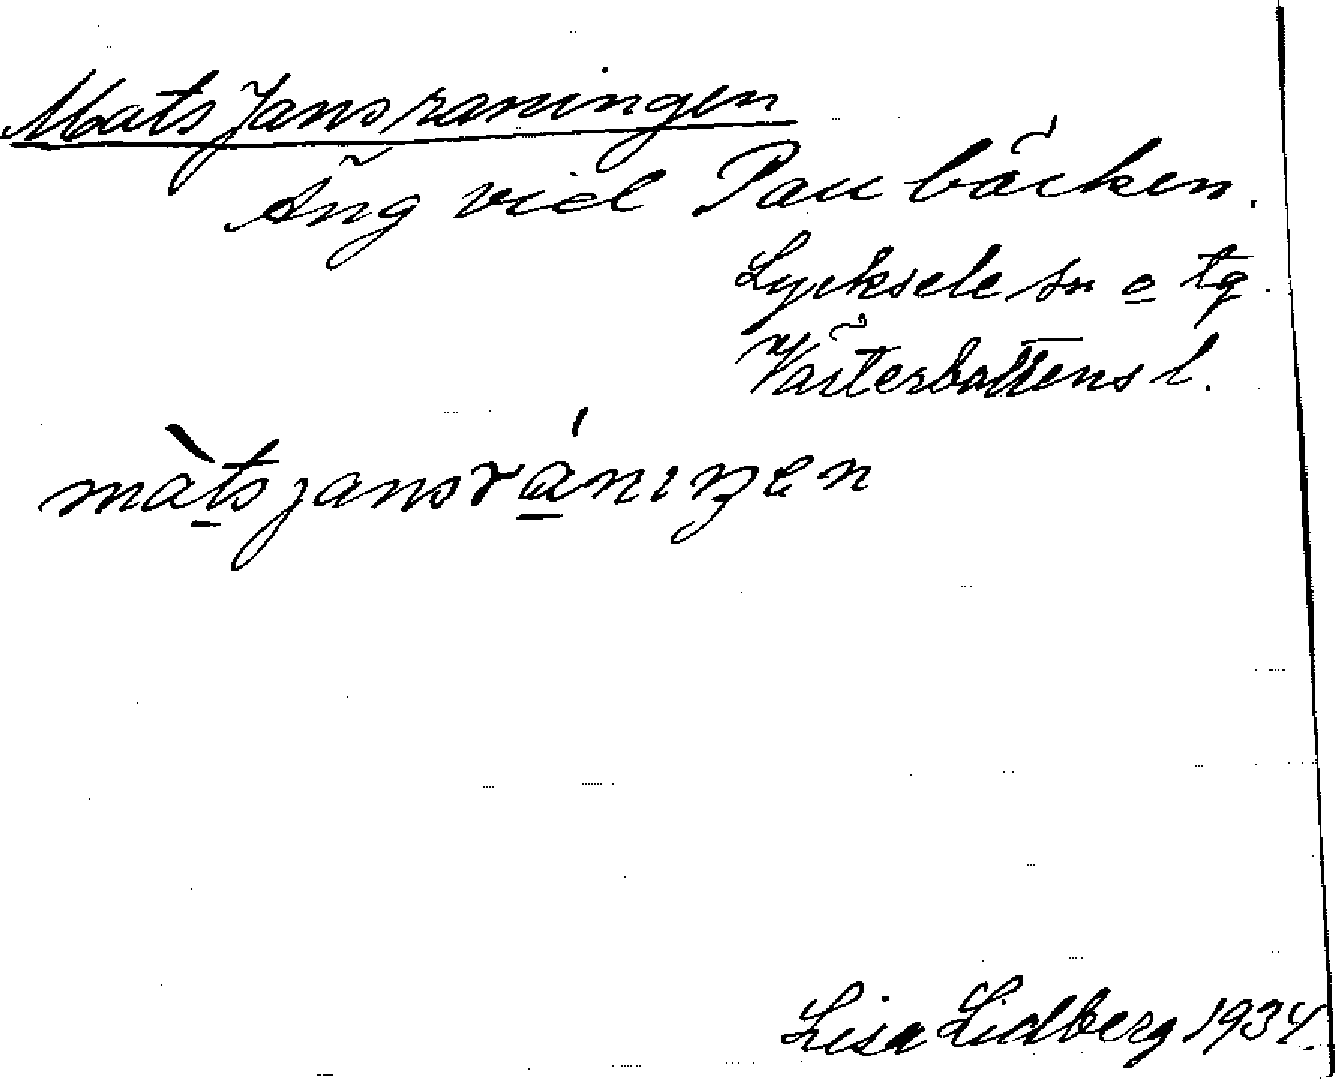 Mats Jansraningen
Äng vid Paubäcken.
Lycksele sn o tg.
Västerbottens l.
màt̲sjansrá̲niŋen
Lisa Lidberg 1934.